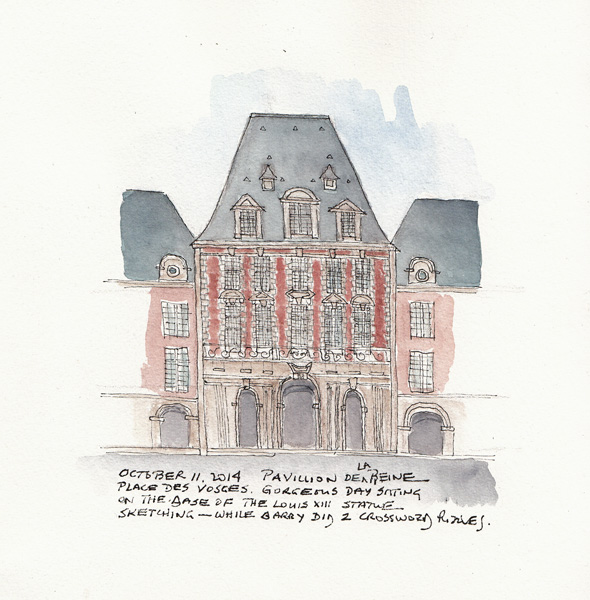 OCTOBER 11, 2014 PAVILLION DE LA REINE
PLACE DES VOSGES. GORGEOUS DAY SITTING
ON THE BASE OF THE LOUIS XIII STATUE
SKETCHING — WHILE BARRY DID 2 CROSSWORD PUZZLES.